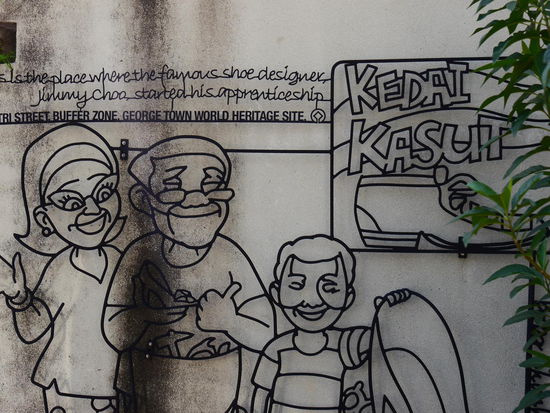 is the place where the famous shoe designer,
Jimmy Choo, started his apprenticeship
STREET BUFFER ZONE. GEORGE TOWN WORLD HERITAGE SITE.
KEDAI
KASUT